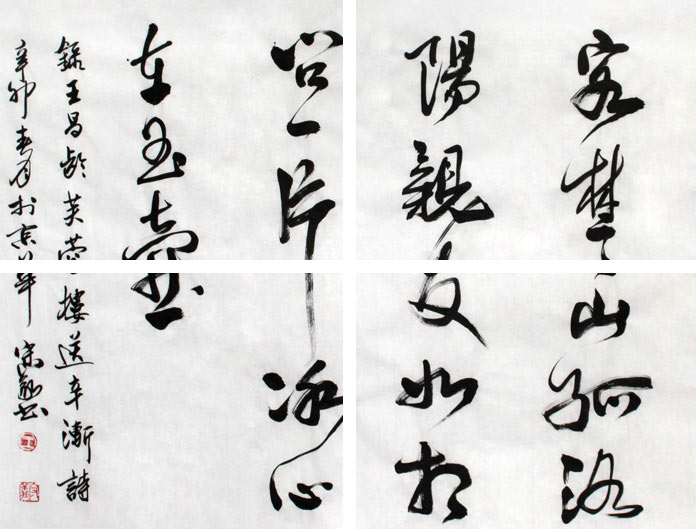 客楚山孤洛
陽親友如相
问一片冰心
在玉壺
錄王昌齡芙蓉樓送辛漸詩
辛卯春月於京華 宋書